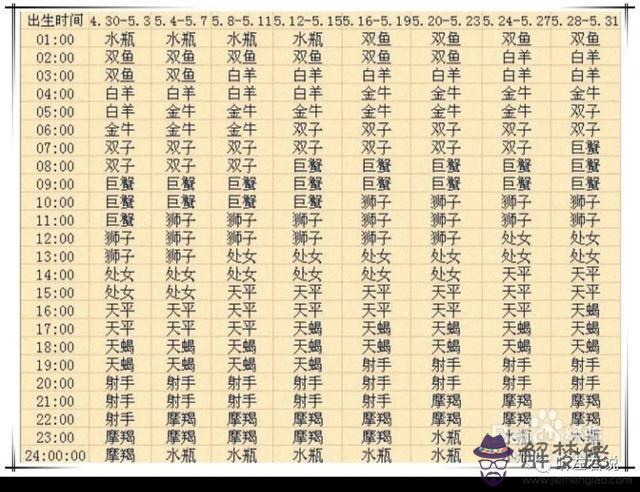 出生时间 4.30-5.3 5.4-5.7 5.8-5.11 5.12-5.15 5.16-5.19 5.20-5.23 5.24-5.27 5.28-5.31
01:00 水瓶 水瓶 水瓶 水瓶 双鱼 双鱼 双鱼 双鱼
02:00 双鱼 双鱼 双鱼 双鱼 双鱼 双鱼 白羊 白羊
03:00 双鱼 双鱼 白羊 白羊 白羊 白羊 白羊 白羊
04:00 白羊 白羊 白羊 白羊 金牛 金牛 金牛 金牛
05:00 白羊 金牛 金牛 金牛 金牛 金牛 金牛 双子
06:00 金牛 金牛 金牛 双子 双子 双子 双子 双子
07:00 双子 双子 双子 双子 双子 双子 双子 巨蟹
08:00 双子 双子 双子 巨蟹 巨蟹 巨蟹 巨蟹 巨蟹
09:00 巨蟹 巨蟹 巨蟹 巨蟹 巨蟹 巨蟹 巨蟹 巨蟹
10:00 巨蟹 巨蟹 巨蟹 巨蟹 狮子 狮子 狮子 狮子
11:00 巨蟹 狮子 狮子 狮子 狮子 狮子 狮子 狮子
12:00 狮子 狮子 狮子 狮子 狮子 狮子 处女 处女
13:00 狮子 狮子 处女 处女 处女 处女 处女 处女
14:00 处女 处女 处女 处女 处女 处女 天平 天平
15:00 处女 处女 天平 天平 天平 天平 天平 天平
16:00 天平 天平 天平 天平 天平 天平 天平 天蝎
17:00 天平 天平 天平 天蝎 天蝎 天蝎 天蝎 天蝎
18:00 天蝎 天蝎 天蝎 天蝎 天蝎 天蝎 天蝎 天蝎
19:00 天蝎 天蝎 天蝎 天蝎 射手 射手 射手 射手
20:00 射手 射手 射手 射手 射手 射手 射手 射手
21:00 射手 射手 射手 射手 射手 摩羯 摩羯 摩羯
22:00 射手 摩羯 摩羯 摩羯 摩羯 摩羯
23:00 摩羯 摩羯 摩羯 摩羯 摩羯 水瓶 水瓶 水瓶
24:00:00 摩羯 水瓶 水瓶 水瓶 水瓶
解梦佬
www.jiemengliao.com